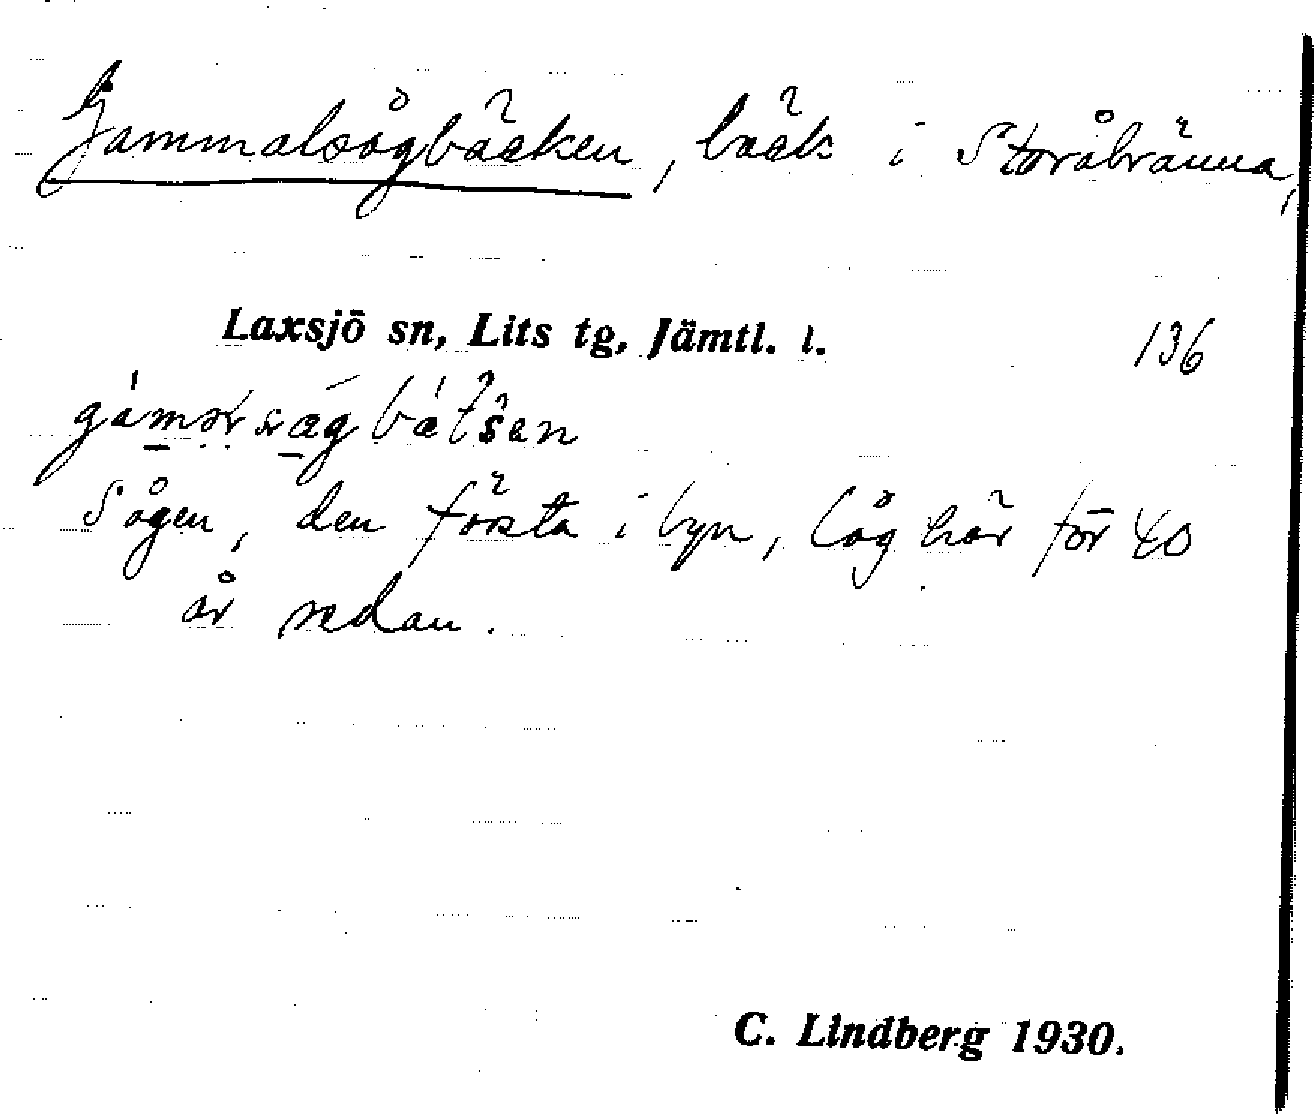 Gammalsågbäcken, bäck i Storåbränna,
Laxsjö sn, Lits tg, Jämtl. l. 136
Sågen, den första i byn, låg här för 40
år sedan.
C. Lindberg 1930.